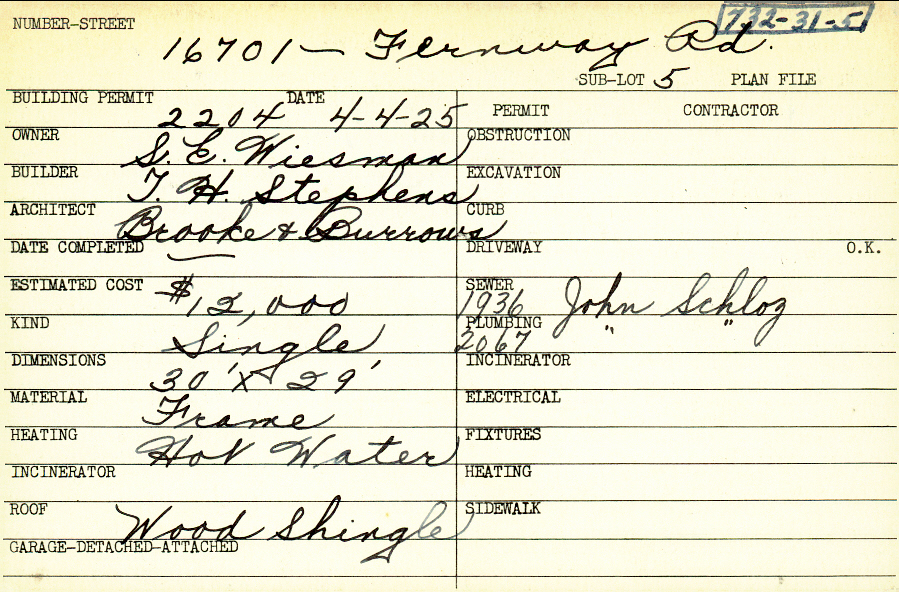 NUMBER-STREET 732-31-5
16701 — Fernway Rd.
SUB-LOT 5 PLAN FILE
BUILDING PERMIT 2204 DATE 4-4-25
PERMIT CONTRACTOR
OWNER S. E. Wiesman
OBSTRUCTION
BUILDER T. H. Stephens
EXCAVATION
ARCHITECT Brooke & Burrows
CURB
DATE COMPLETED —
DRIVEWAY O.K.
ESTIMATED COST $12,000
SEWER 1936 John Schloz
KIND Single
PLUMBING 2067 " "
DIMENSIONS 30' X 29'
INCINERATOR
MATERIAL Frame
ELECTRICAL
HEATING Hot Water
FIXTURES
INCINERATOR
HEATING
ROOF Wood Shingle
SIDEWALK
GARAGE-DETACHED-ATTACHED